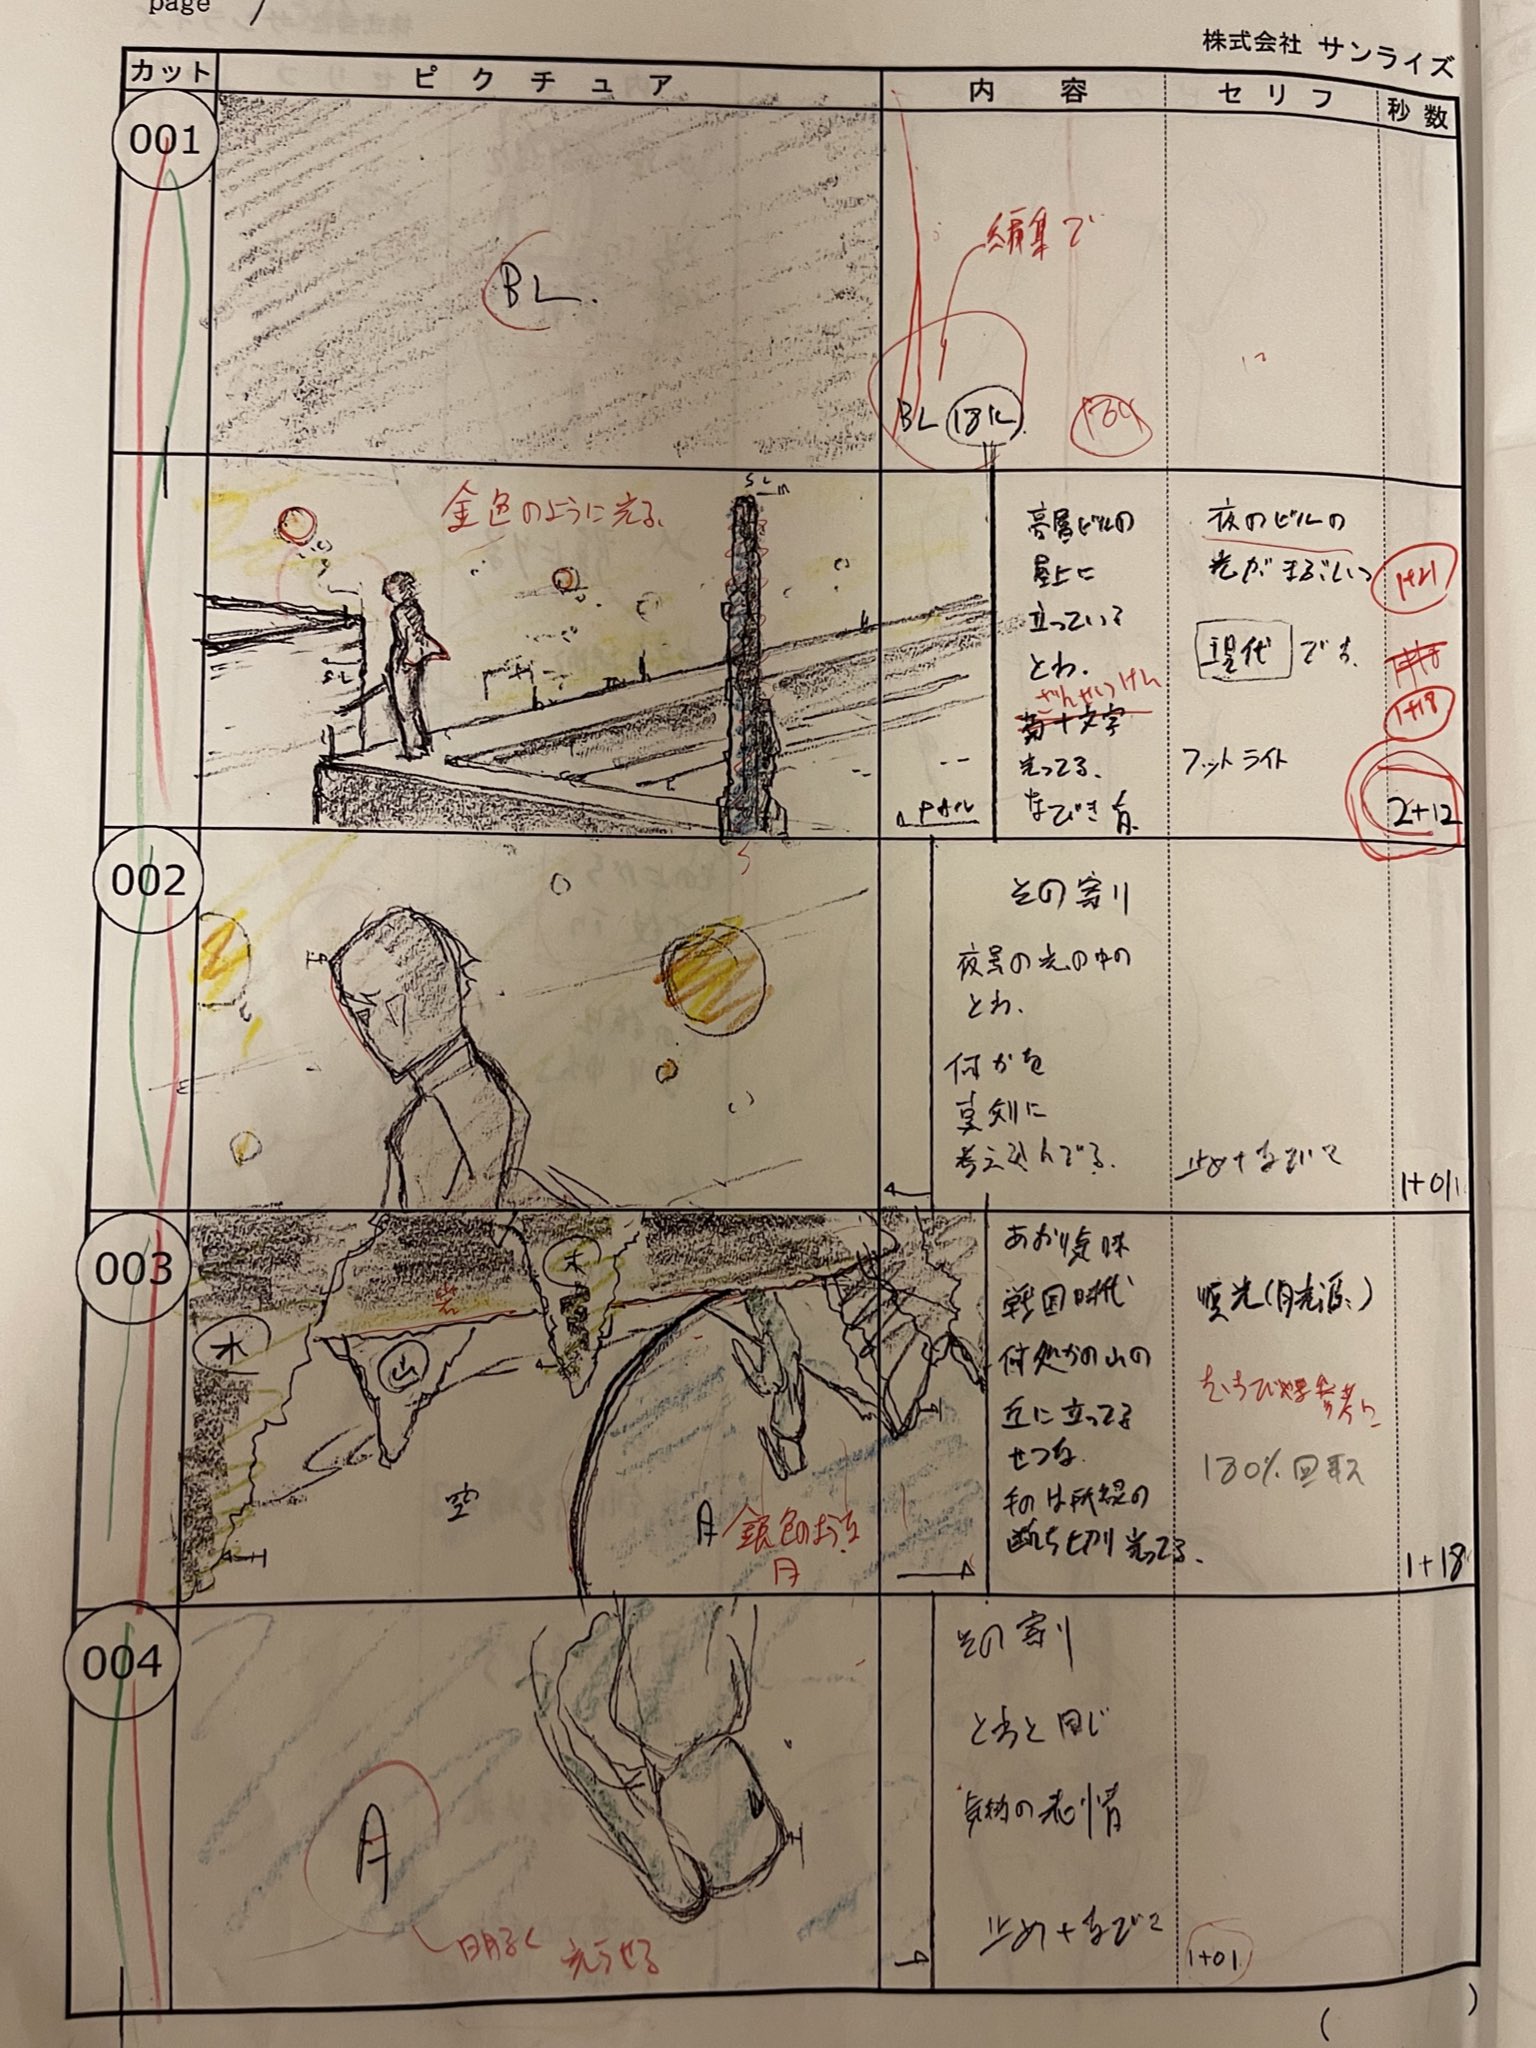 page
株式会社 サンライズ
カット
ピクチュア
内容
セリフ
秒数
001
BL.
編集で
BL 18K
金色のように光る。
高層ビルの
屋上に
立っている
とわ。
ざんせつけん
菊十文字
光ってる。
なびき有
夜のビルの
光がまぶしい
現代です。
フットライト
1+21
1+18
2+12
002
その寄り
夜景の光の中の
とわ。
何かを
真剣に
考え込んでる。
止め+なびきで
1+01
003
木
岩
山
木
空
月
銀色のような
月
あおり気味
戦国時代
何処かの山の
丘に立ってる
せつな
光ってる。
順光(月光源)
180%回転
1+18
004
月
明るく
光らせる
その寄り
とわと同じ
気持の表情
1+01
( )